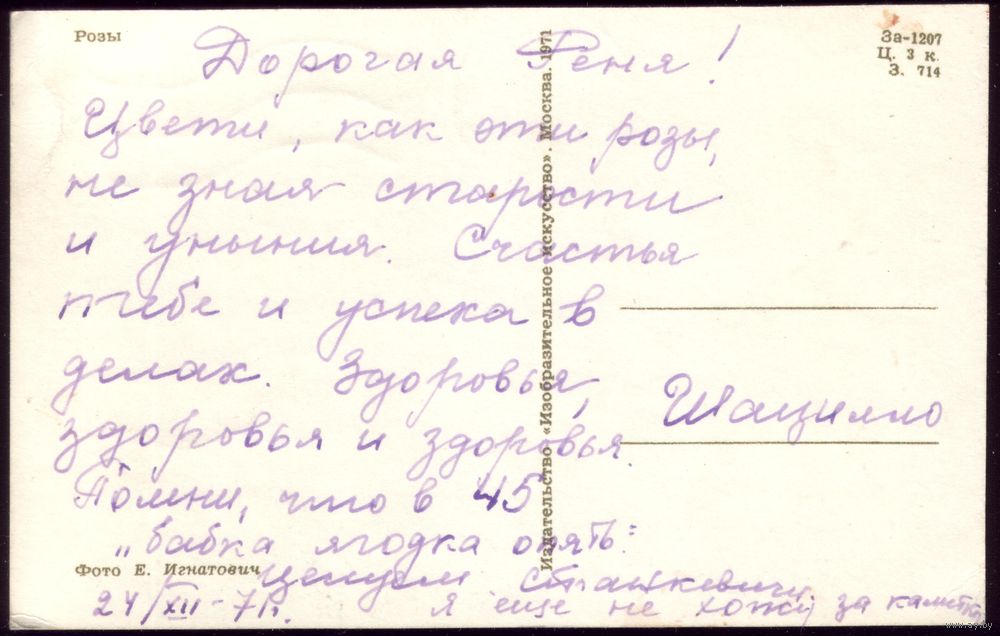 Розы
За-1207
Ц. 3 к.
З. 714
Дорогая Геня!
Цвети, как эти розы,
не зная старости
и уныния. Счастья
тебе и успеха в
делах. Здоровья,
здоровья и здоровья.
Помни, что в 45
„бабка ягодка опять:
целуем Станкевичи
24/XII-71г. я еще не хожу за калитку
Шацилло
Издательство «Изобразительное искусство». Москва. 1971
Фото Е. Игнатович
www.ay.by